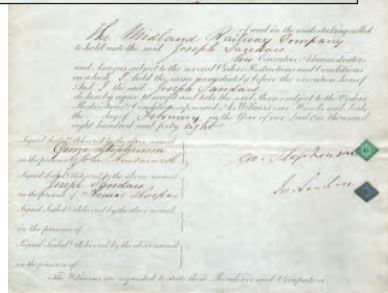 of and in the undertaking called
The Midland Railway Company
to hold unto the said Joseph Sandars
his Executors Administrators
and Assigns, subject to the several Orders Restrictions and Conditions
on which I held the same immediately before the execution hereof
And I the said Joseph Sandars
do hereby agree to accept and take the said Shares subject to the Orders
Restrictions & Conditions aforesaid As Witness our Hands and Seals
the day of February in the Year of our Lord One thousand
eight hundred and forty eight
Signed Sealed & delivered by the above named
George Stephenson
in the presence of John
Signed Sealed & delivered by the above named
Joseph Sandars
in the presence of Thomas
Signed Sealed & delivered by the above named
in the presence of
Signed Sealed & delivered by the above named
in the presence of
Geo. Stephenson
Jos Sandars
The Witnesses are requested to state their Residence and Occupation